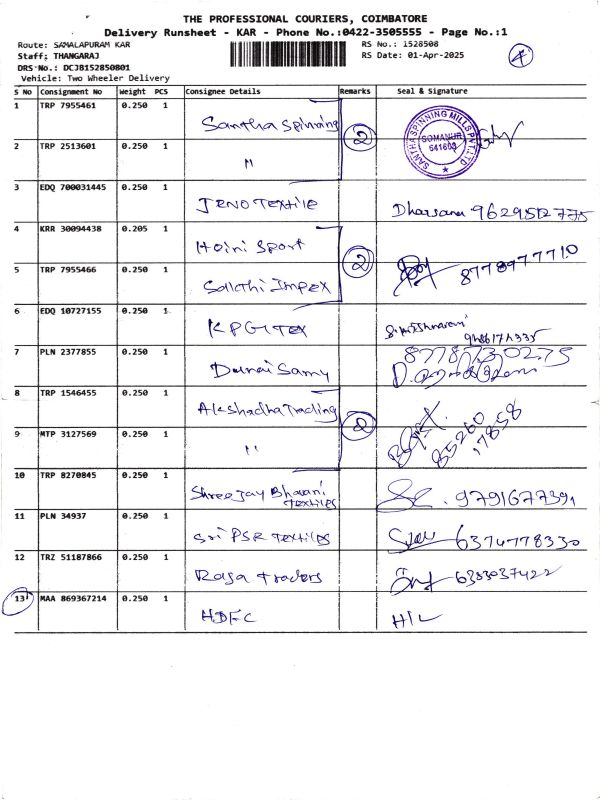 THE PROFESSIONAL COURIERS, COIMBATORE
Delivery Runsheet - KAR - Phone No.:0422-3505555 - Page No.:1
Route: SAMALAPURAM KAR
RS No.: 1528508
Staff: THANGARAJ
RS Date: 01-Apr-2025
DRS No.: DCJB152850801
Vehicle: Two Wheeler Delivery
S No Consignment No Weight PCS Consignee Details Remarks Seal & Signature
1 TRP 7955461 0.250 1 Santha Spinning 2
SANTHA SPINNING MILLS PVT. LTD SOMANUR 641668
2 TRP 2513601 0.250 1 "
3 EDQ 700031445 0.250 1 JENO TEXTILE Dharsana
4 KRR 30094438 0.205 1 Hoini Sport 2
5 TRP 7955466 0.250 1 Sakthi Impex 8778977710
6 EDQ 10727155 0.250 1 KPG TEX
7 PLN 2377855 0.250 1 Durai Samy
8 TRP 1546455 0.250 1 Akshadha Trading 2
85260
17858
9 MTP 3127569 0.250 1 "
10 TRP 8270845 0.250 1 Shree Jay Bhavani textiles 9791677391
11 PLN 34937 0.250 1 Sri PSR textiles 6374778330
12 TRZ 51187866 0.250 1 Raja traders 6383037422
13 MAA 869367214 0.250 1 HDFC H/L